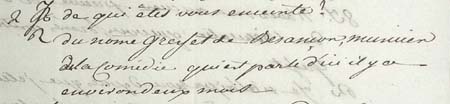 2 D. de qui êtes vous enceinte?
R. du nomé Grisset de Besancon, musicien
de la Comedie qui est parti d'ici il y a
environ deux mois